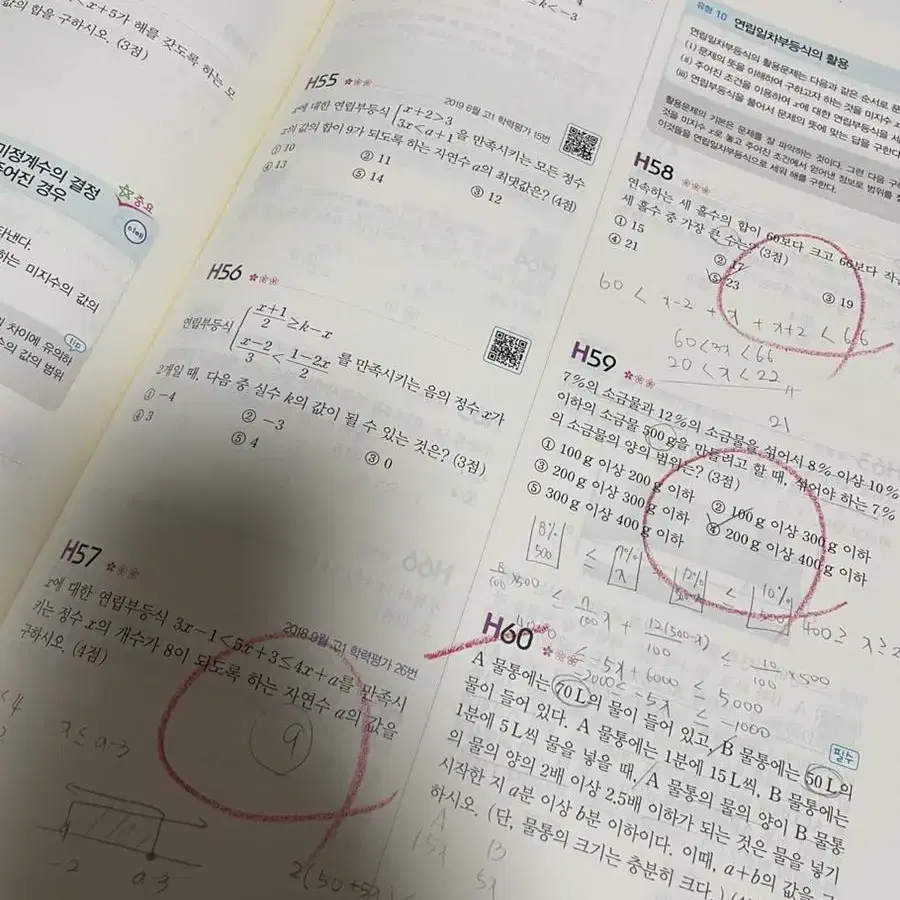 x+5가 해를 갖도록 하는 모
값의 합을 구하시오. (3점)
미정계수의 결정
중요
tip
H55
2019 6월 고1 학력평가 15번
x에 대한 연립부등식 { x+2>3
3x<a+1 을 만족시키는 모든 정수
x의 값의 합이 9가 되도록 하는 자연수 a의 최댓값은? (4점)
① 10 ② 11 ③ 12
④ 13 ⑤ 14
H56
연립부등식 { (x+1)/2 ≥ k-x
(x-2)/3 < (1-2x)/2 를 만족시키는 음의 정수 x가
2개일 때, 다음 중 실수 k의 값이 될 수 있는 것은? (3점)
① -4 ② -3 ③ 0
④ 3 ⑤ 4
H57
2018.9월 고1 학력평가 26번
x에 대한 연립부등식 3x-1<5x+3≤4x+a를 만족시
키는 정수 x의 개수가 8이 되도록 하는 자연수 a의 값을
구하시오. (4점)
9
x ≤ a-3
-2 a-3
유형 10 연립일차부등식의 활용
연립일차부등식의 활용문제는 다음과 같은 순서로
(i) 문제의 뜻을 이해하여 구하고자 하는 것을 미지수
(ii) 주어진 조건을 이용하여 x에 대한 연립부등식을 세
(iii) 연립부등식을 풀어서 문제의 뜻에 맞는 답을 구한다
활용문제의 기본은 문제를 잘 파악하는 것이다. 그런 다음
것을 미지수 x로 놓고 주어진 조건에서 얻어낸 정보로 범위를
이것들을 연립일차부등식으로 세워 해를 구한다.
H58
연속하는 세 홀수의 합이 60보다 크고 66보다 작
세 홀수 중 가장 큰 수는? (3점)
① 15 ② 17 ③ 19
④ 21 ⑤ 23
60 < x-2 + x + x+2 < 66
60<3x<66
20 < x < 22
21
H59
7%의 소금물과 12%의 소금물을 섞어서 8% 이상 10%
이하의 소금물 500g을 만들려고 할 때, 섞어야 하는 7%
의 소금물의 양의 범위는? (3점)
① 100g 이상 200g 이하 ② 100g 이상 300g 이하
③ 200g 이상 300g 이하 ④ 200g 이상 400g 이하
⑤ 300g 이상 400g 이하
8% 500 ≤ 7% x
10%
8/100 ×500 ≤ 7/100 x + 12(500-x)/100 ≤ 10/100 ×500
≤ -5x + 6000 ≤ 5000
-2000 ≤ -5x ≤ -1000
400 ≥ x ≥ 2
H60
필수
A 물통에는 70L의 물이 들어 있고, B 물통에는 50L의
물이 들어 있다. A 물통에는 1분에 15L씩, B 물통에는
1분에 5L씩 물을 넣을 때, A 물통의 물의 양이 B 물통
의 물의 양의 2배 이상 2.5배 이하가 되는 것은 물을 넣기
시작한 지 a분 이상 b분 이하이다. 이때, a+b의 값을 구
하시오. (단, 물통의 크기는 충분히 크다.)
A
15x
5x
2(50+5x)